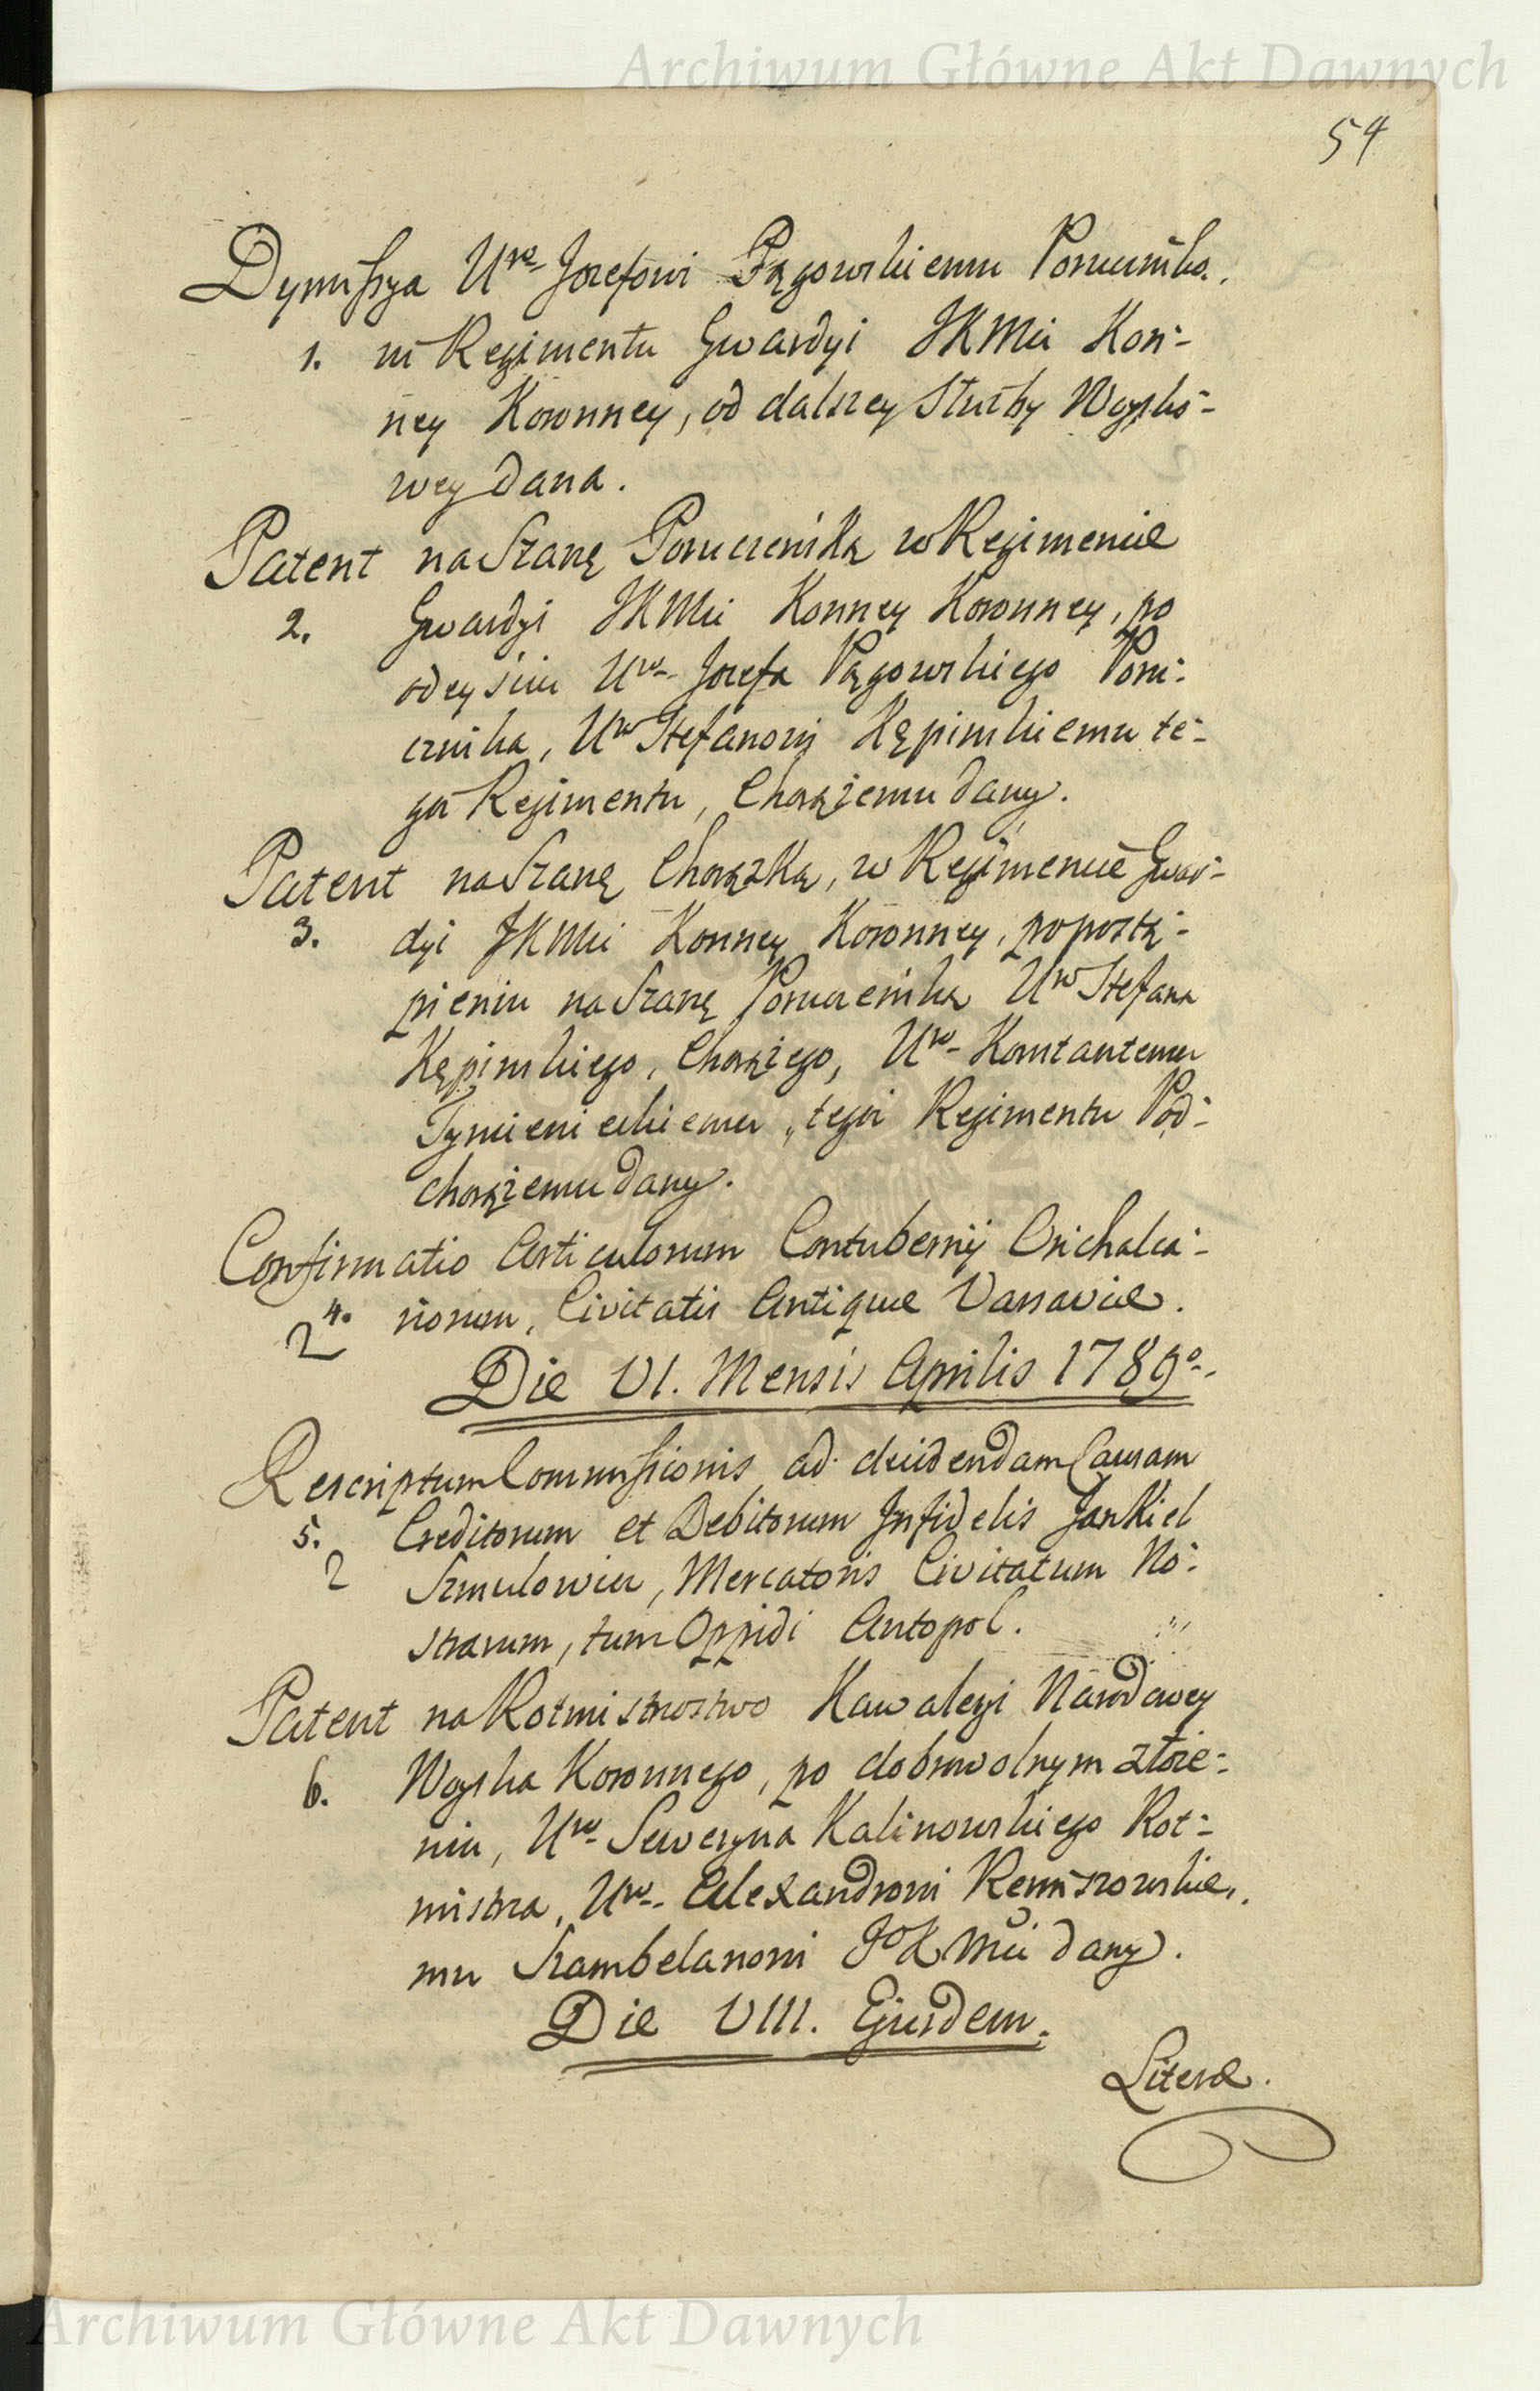 Archiwum Główne Akt Dawnych
54
Dymissya Uro- Jozefowi Pągowskiemu Poruczniko.
1. wi Regimentu Gwardyi JKMci Kon-
ney Koronney, od dalszey Służby Woysko-
wey dana.
Patent na Szarżę Porucznika w Regimencie
2. Gwardyi JKMci Konney Koronney, po
odeyściu Uro- Jozefa Pągowskiego Poru-
cznika, Uro Stefanowi Kępinskiemu te-
goż Regimentu, Chorążemu dany.
Patent na Szarżę Chorążką, w Regimencie Gwar-
3. dyi JKMci Konney Koronney, po postą-
pieniu na Szarżę Porucznika Uro Stefana
Kępinskiego, Chorążego, Uro- Konstantemu
Tymienieckiemu, tegoż Regimentu Pod-
chorążemu dany.
Confirmatio Articulorum Contubernij Orichalca-
4. riorum, Civitatis Antiquæ Varsaviæ.
2
Die VI. Mensis Aprilis 1789o-.
Rescriptum Commissionis ad decidendam Causam
5. Creditorum et Debitorum Infidelis Jankiel
2 Szmulowicz, Mercatoris Civitatum No-
strarum, tum Oppidi Antopol.
Patent na Rotmistrzostwo Kawaleryi Narodowey
6. Woyska Koronnego, po dobrowolnym złoże-
niu, Uro- Seweryna Kalinowskiego Rot-
mistrza, Uro- Alexandrowi Remiszowskie,
mu Szambelanowi JoKMci dany.
Die VIII. Ejusdem.
Literæ.
Archiwum Główne Akt Dawnych